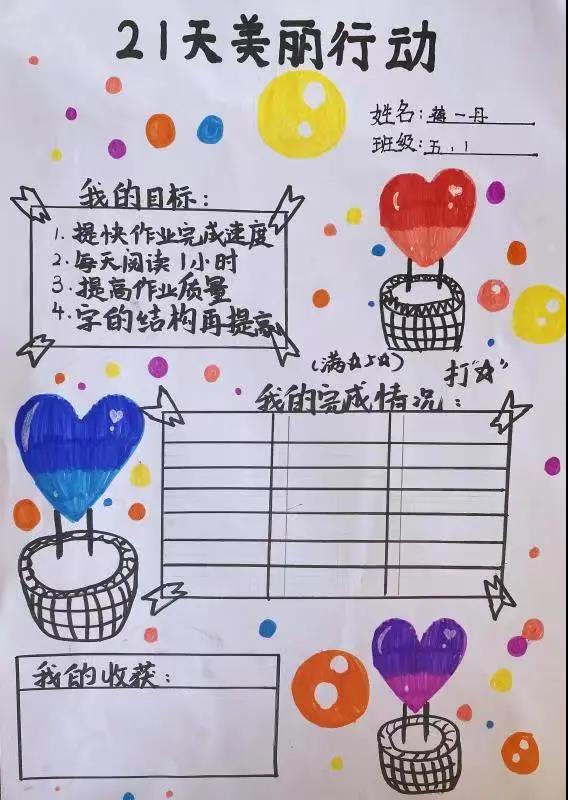 21天美丽行动
姓名:蒋一丹
班级:五.1
我的目标:
1. 提快作业完成速度
2. 每天阅读1小时
3. 提高作业质量
4. 字的结构再提高
(满☆5☆) 打"☆"
我的完成情况:
我的收获: